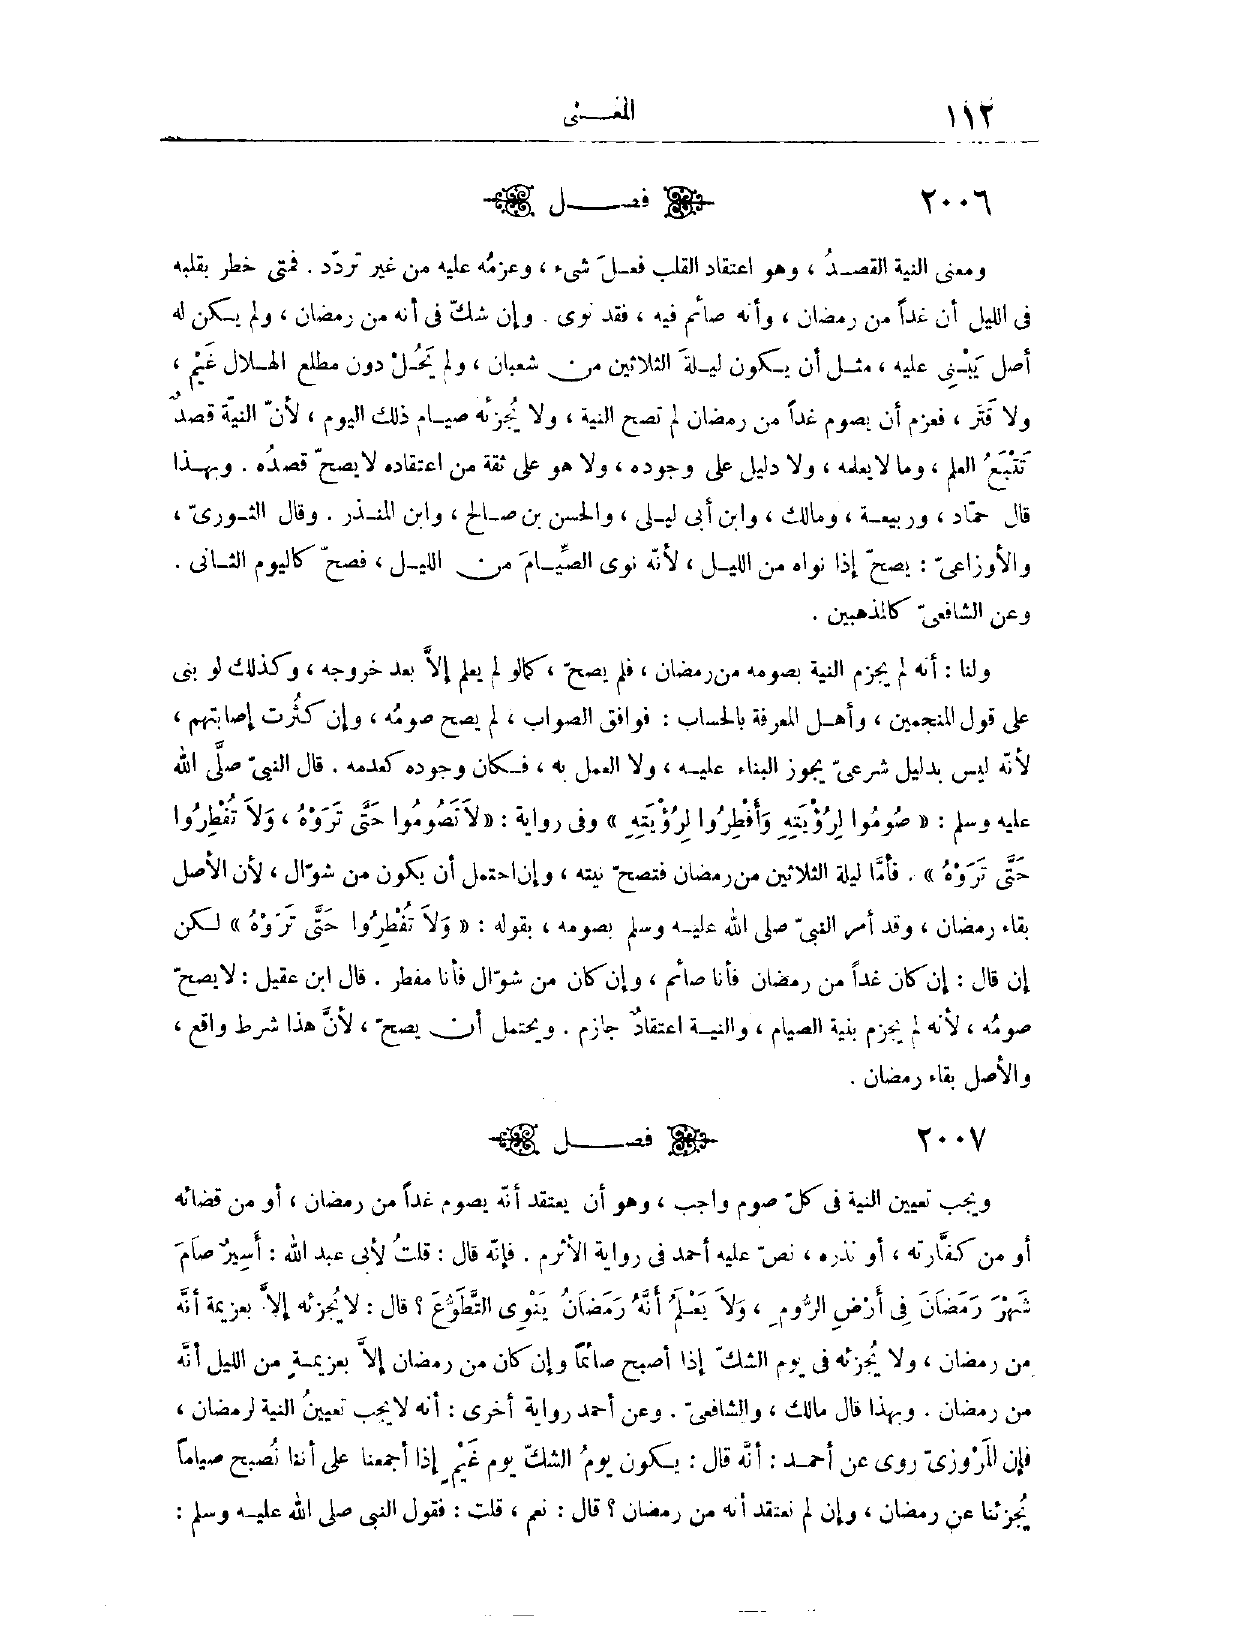 ١١٢
المغـــنى
٢٠٠٦ فصــــل
ومعنى النية القصـدُ ، وهو اعتقاد القلب فعـلَ شىء ، وعزمُه عليه من غير تردّد . فمتى خطر بقلبه
فى الليل أن غداً من رمضان ، وأنه صائم فيه ، فقد نوى . وإن شكّ فى أنه من رمضان ، ولم يـكن له
أصل يَبْنِـى عليه ، مثـل أن يـكون ليـلةَ الثلاثين مـن شعبان ، ولم يَحُـلْ دون مطلع الهـلال غَيْم ،
ولا قَتَر ، فعزم أن يصوم غداً من رمضان لم تصح النية ، ولا يُجزئه صيـام ذلك اليوم ، لأنّ النيّة قصدٌ
تَتْبَعُ العلم ، وما لا يعلمه ، ولا دليل على وجوده ، ولا هو على ثقة من اعتقاده لا يصحّ قصدُه . وبهـذا
قال حمّاد ، وربيعـة ، ومالك ، وابن أبى ليـلى ، والحسن بن صـالح ، وابن المنـذر . وقال الثـورىّ ،
والأوزاعىّ : يصحّ إذا نواه من الليـل ، لأنّه نوى الصِّيـامَ مـن الليـل ، فصحّ كاليوم الثـانى .
وعن الشافعىّ كالمذهبين .
ولنا : أنه لم يجزم النية بصومه من رمضان ، فلم يصحّ ، كما لو لم يعلم إلاَّ بعد خروجه ، وكذلك لو بنى
على قول المنجمين ، وأهـل المعرفة بالحساب : فوافق الصواب ، لم يصح صومُه ، وإن كثُرت إصابتهم ،
لأنّه ليس بدليل شرعىّ يجوز البناء عليـه ، ولا العمل به ، فـكان وجوده كعدمه . قال النبىّ صلَّى الله
عليه وسلم : « صُومُوا لِرُؤْيَتِهِ وَأَفْطِرُوا لِرُؤْيَتِهِ » وفى رواية : « لاَ تَصُومُوا حَتَّى تَرَوْهُ ، وَلاَ تُفْطِرُوا
حَتَّى تَرَوْهُ » . فأمَّا ليلة الثلاثين من رمضان فتصحّ نيته ، وإن احتمل أن يكون من شوّال ، لأن الأصل
بقاء رمضان ، وقد أمر النبىّ صلى الله عليـه وسلم بصومه ، بقوله : « وَلاَ تُفْطِرُوا حَتَّى تَرَوْهُ » لـكن
إن قال : إن كان غداً من رمضان فأنا صائم ، وإن كان من شوّال فأنا مفطر . قال ابن عقيل : لا يصحّ
صومُه ، لأنه لم يجزم بنية الصيام ، والنيـة اعتقادٌ جازم . ويحتمل أن يصحّ ، لأنَّ هذا شرط واقع ،
والأصل بقاء رمضان .
٢٠٠٧ فصــــل
ويجب تعيين النية فى كلّ صوم واجب ، وهو أن يعتقد أنّه يصوم غداً من رمضان ، أو من قضائه
أو من كفَّارته ، أو نذره ، نصّ عليه أحمد فى رواية الأثرم . فإنّه قال : قلتُ لأبى عبد الله : أَسِيرٌ صَامَ
شَهْرَ رَمَضَانَ فِى أَرْضِ الرُّومِ ، وَلاَ يَعْـلَمُ أَنَّهُ رَمَضَانُ يَنْوِى التَّطَوُّعَ ؟ قال : لا يُجزئه إلاَّ بعزيمة أنَّه
من رمضان ، ولا يُجزئه فى يوم الشكّ إذا أصبح صائمًا وإن كان من رمضان إلاَّ بعزيمـةٍ من الليل أنَّه
من رمضان . وبهذا قال مالك ، والشافعىّ . وعن أحمد رواية أخرى : أنه لا يجب تعيينُ النية لرمضان ،
فإن المَرْوزىّ روى عن أحمـد : أنَّه قال : يـكون يومُ الشكّ يوم غَيْمٍ إذا أجمعنا على أننا نُصبح صياماً
يُجزئنا عن رمضان ، وإن لم نعتقد أنه من رمضان ؟ قال : نعم ، قلت : فقول النبى صلى الله عليـه وسلم :